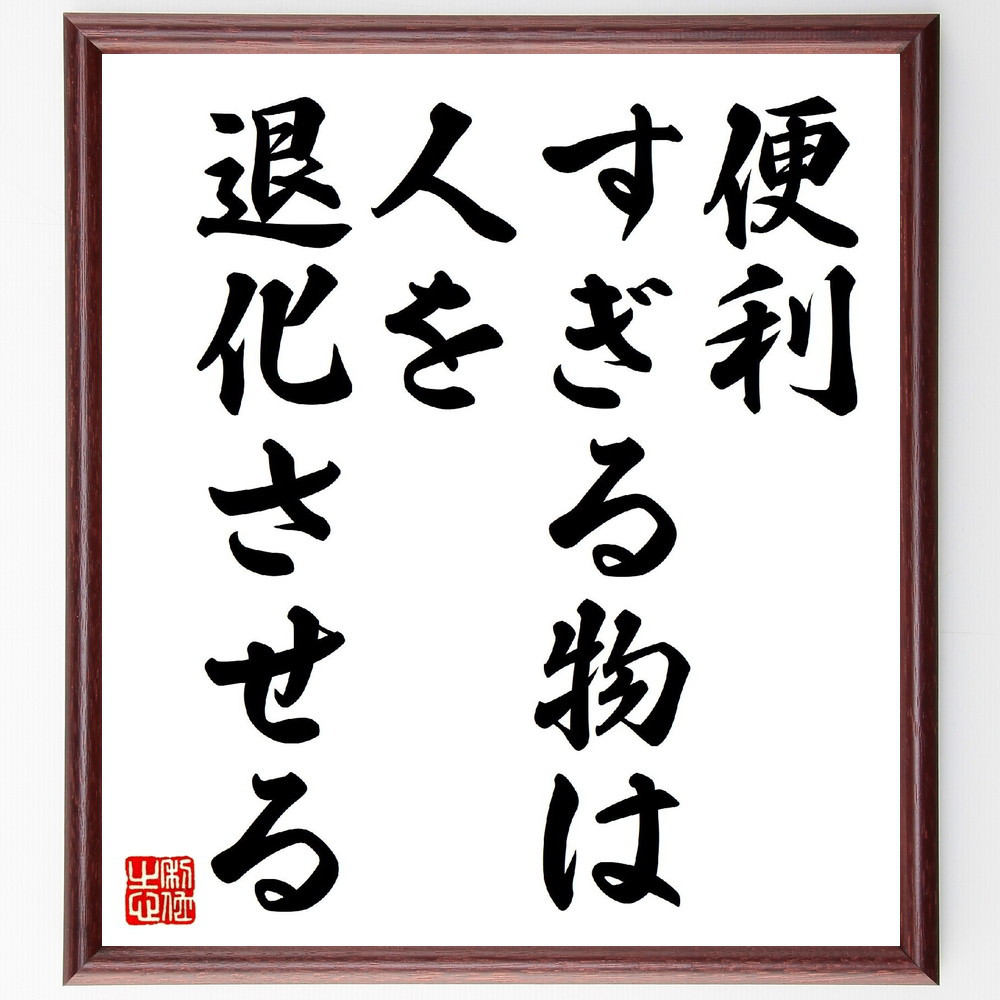 便利
すぎる物は
人を
退化させる